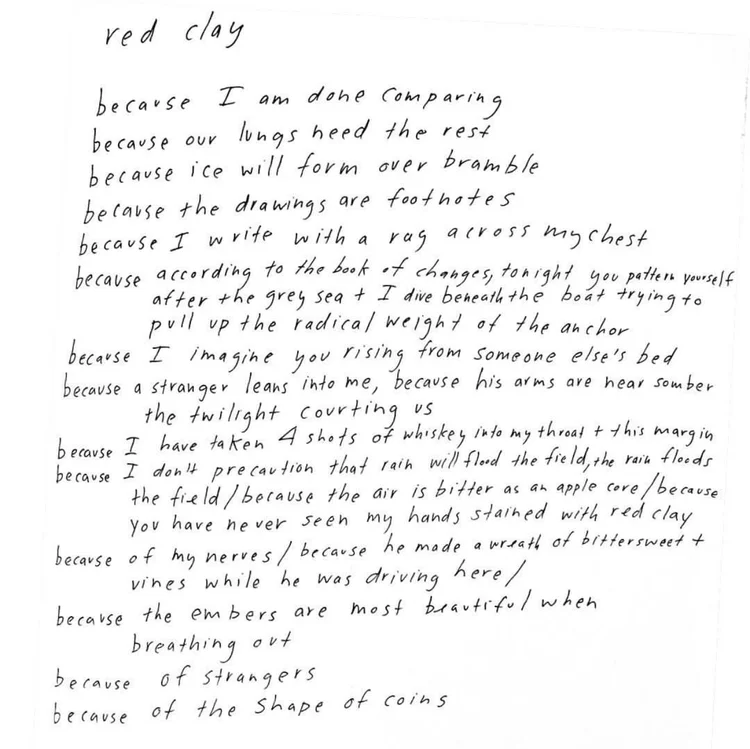 red clay
because I am done comparing
because our lungs need the rest
because ice will form over bramble
because the drawings are footnotes
because I write with a rag across my chest
because according to the book of changes, tonight you pattern yourself
after the grey sea + I dive beneath the boat trying to
pull up the radical weight of the anchor
because I imagine you rising from someone else's bed
because a stranger leans into me, because his arms are near somber
the twilight courting us
because I have taken 4 shots of whiskey into my throat + this margin
because I don't precaution that rain will flood the field, the rain floods
the field / because the air is bitter as an apple core / because
you have never seen my hands stained with red clay
because of my nerves / because he made a wreath of bittersweet +
vines while he was driving here /
because the embers are most beautiful when
breathing out
because of strangers
because of the shape of coins